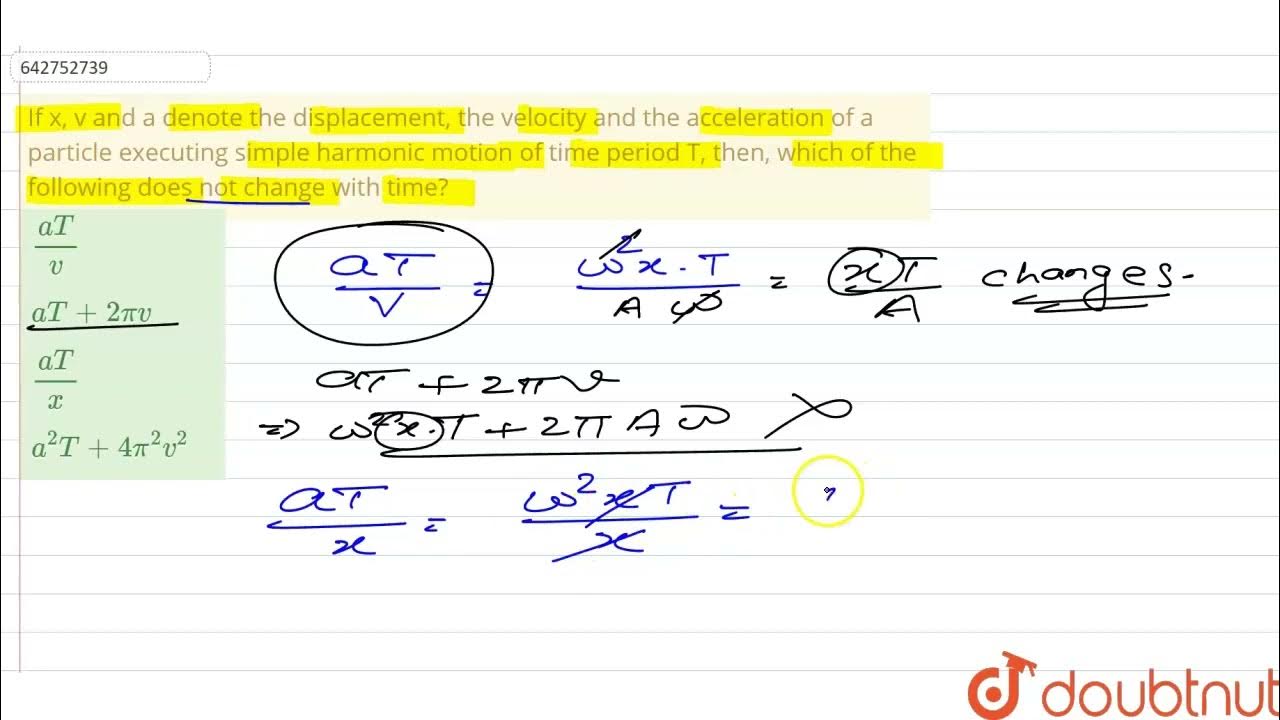 642752739
If x, v and a denote the displacement, the velocity and the acceleration of a
particle executing simple harmonic motion of time period T, then, which of the
following does not change with time?
aT/v
aT + 2πv
aT/x
a²T + 4π²v²
aT/V = ω²x·T/Aω = xT/A changes-
aT + 2πv
⇒ ω²x·T + 2πAω
aT/x = ω²xT/x =
doubtnut